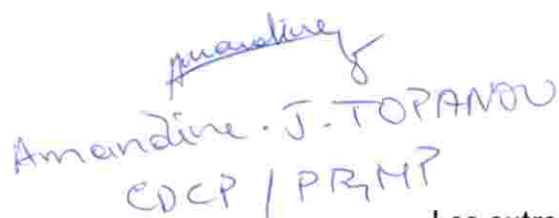 Amandine
Amandine. J. TOPANOU
CDCP / PRMP
Les autre